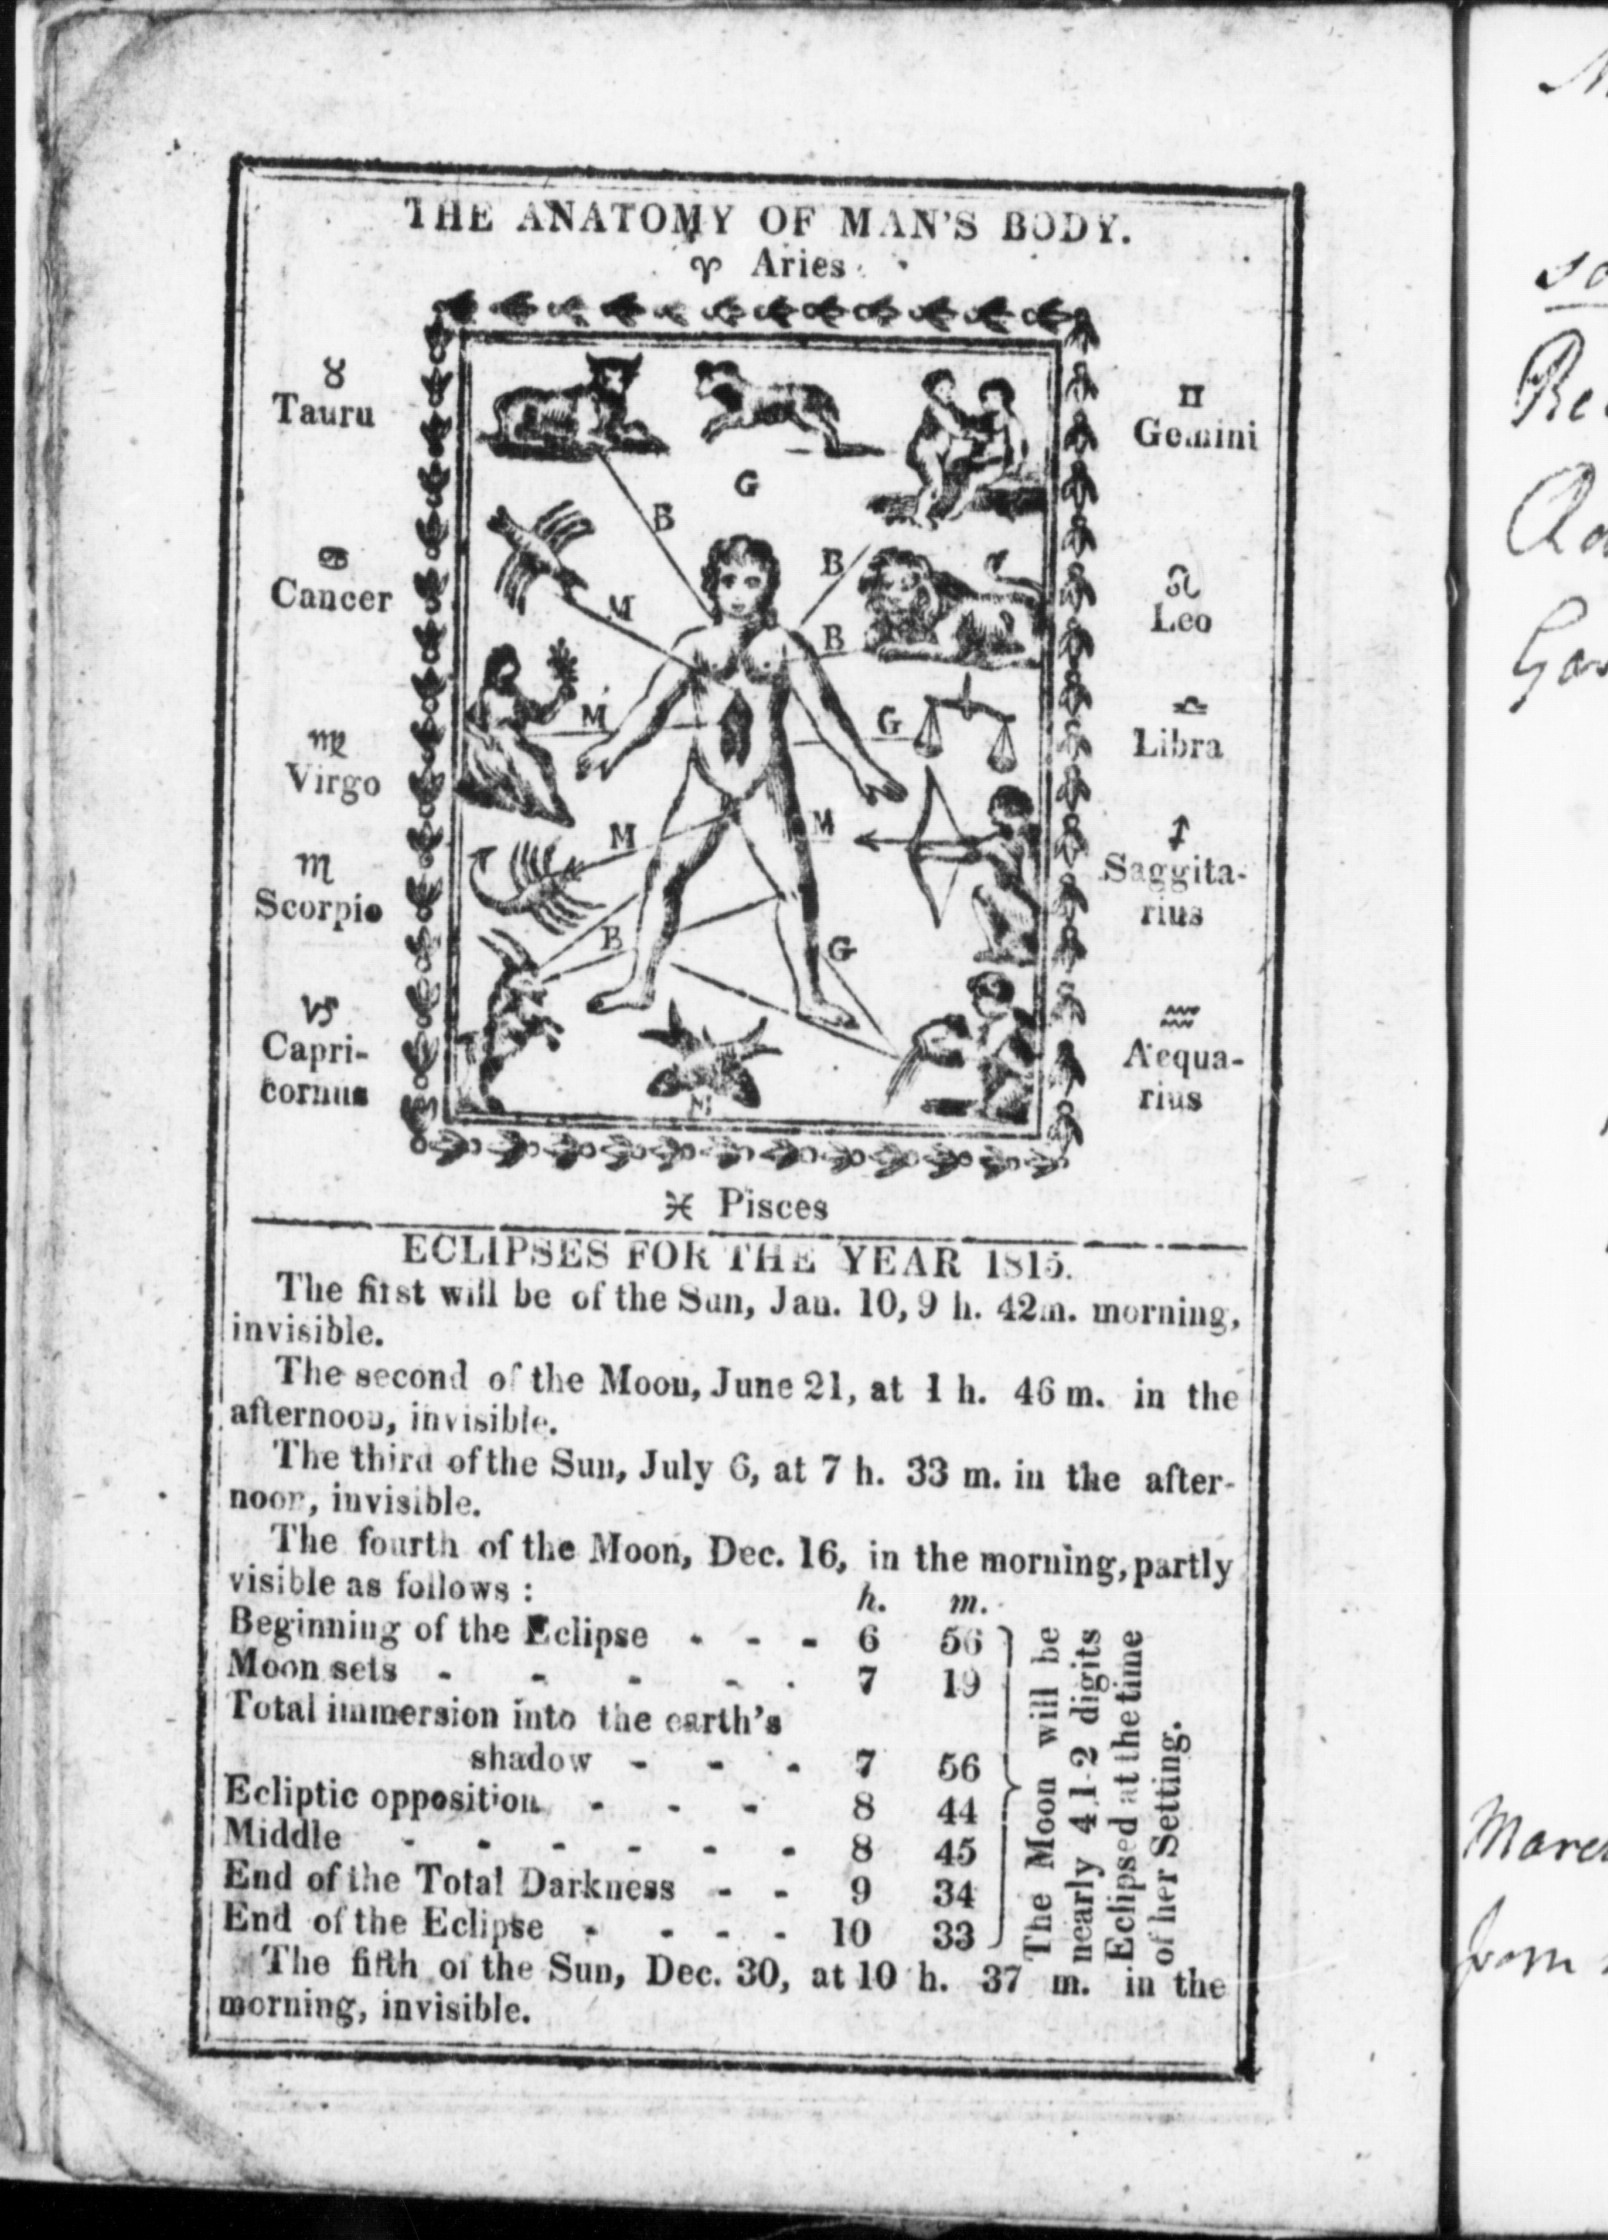 THE ANATOMY OF MAN'S BODY.
♈ Aries
♉
Tauru
♊
Gemini
G
B
B
♋
Cancer
♌
Leo
M
B
♍
Virgo
♎
Libra
M
G
♏
Scorpio
♐
Saggita-
rius
M
M
B
G
♑
Capri-
cornus
♒
Aequa-
rius
M
♓ Pisces
ECLIPSES FOR THE YEAR 1815.
The first will be of the Sun, Jan. 10, 9 h. 42m. morning,
invisible.
The second of the Moon, June 21, at 1 h. 46 m. in the
afternoon, invisible.
The third of the Sun, July 6, at 7 h. 33 m. in the after-
noon, invisible.
The fourth of the Moon, Dec. 16, in the morning, partly
visible as follows : h. m.
Beginning of the Eclipse - - - 6 56
Moon sets - - - - - 7 19
Total immersion into the earth's
shadow - - - 7 56
Ecliptic opposition - - - 8 44
Middle - - - - - - 8 45
End of the Total Darkness - - 9 34
End of the Eclipse - - - - 10 33
The Moon will be
nearly 4 1-2 digits
Eclipsed at the time
of her Setting.
The fifth of the Sun, Dec. 30, at 10 h. 37 m. in the
morning, invisible.